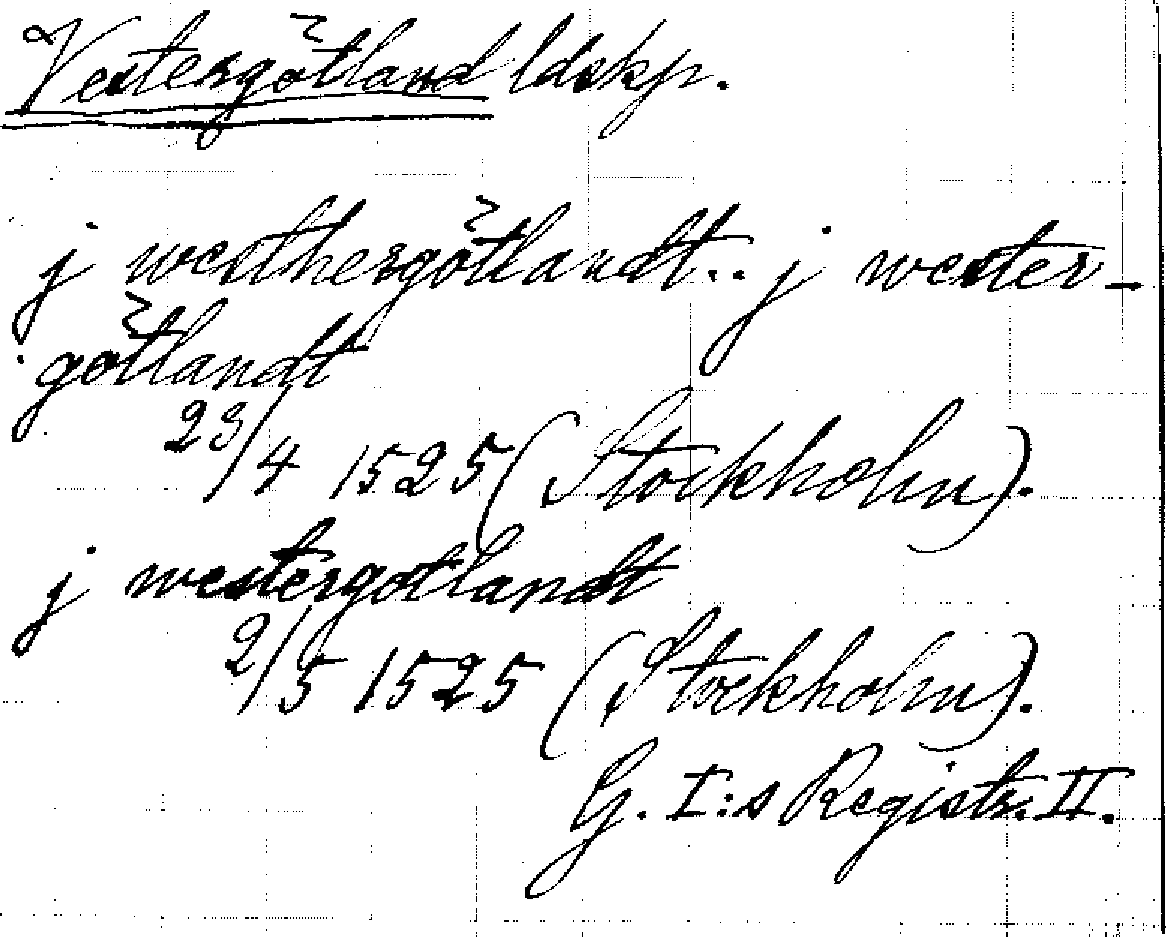 Vestergötland ldskp.
j westhergötlandt.. j wester-
götlandt
23/4 1525 (Stockholm).
j westergotlandt
2/5 1525 (Stockholm).
G. I:s Registr. II.